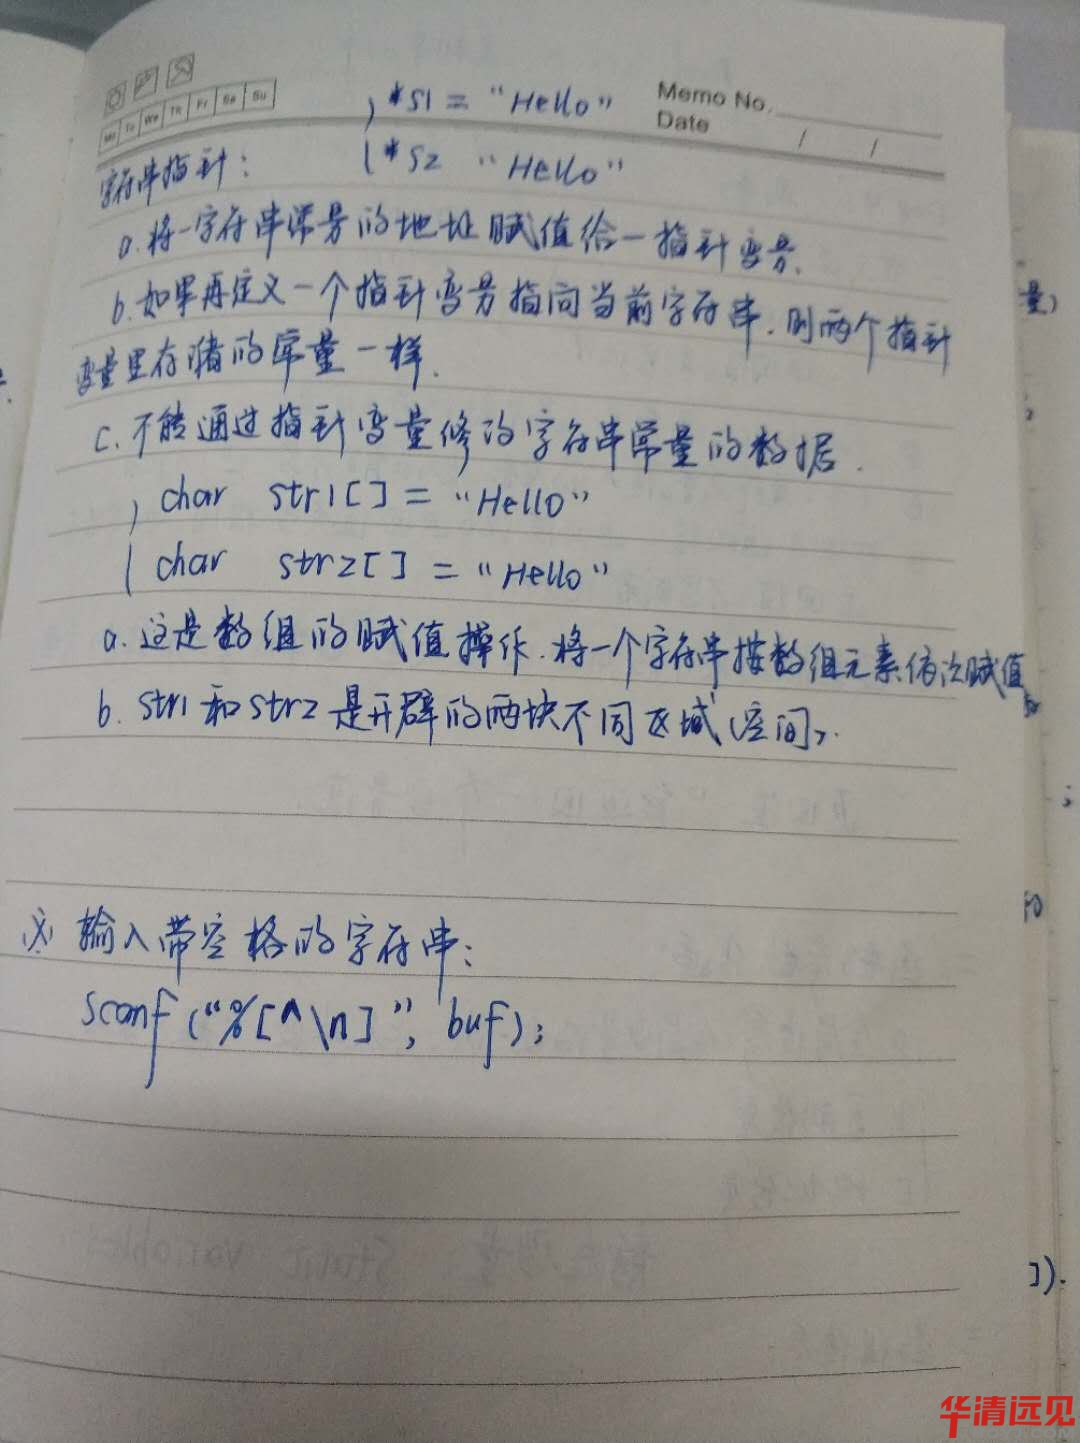 Mo Tu We Th Fr Sa Su
Memo No.
Date / /
*S1 = "Hello"
*S2 "Hello"
字符串指针:
a. 将一字符串常量的地址赋值给一指针变量.
b. 如果再定义一个指针变量指向当前字符串, 则两个指针
变量里存储的常量一样.
c. 不能通过指针变量修改字符串常量的数据.
char str1[] = "Hello"
char str2[] = "Hello"
a. 这是数组的赋值操作. 将一个字符串按数组元素依次赋值
b. str1和str2是开辟的两块不同区域(空间).
输入带空格的字符串:
scanf("%[^\n]", buf);
量)
的
]).
华清远见